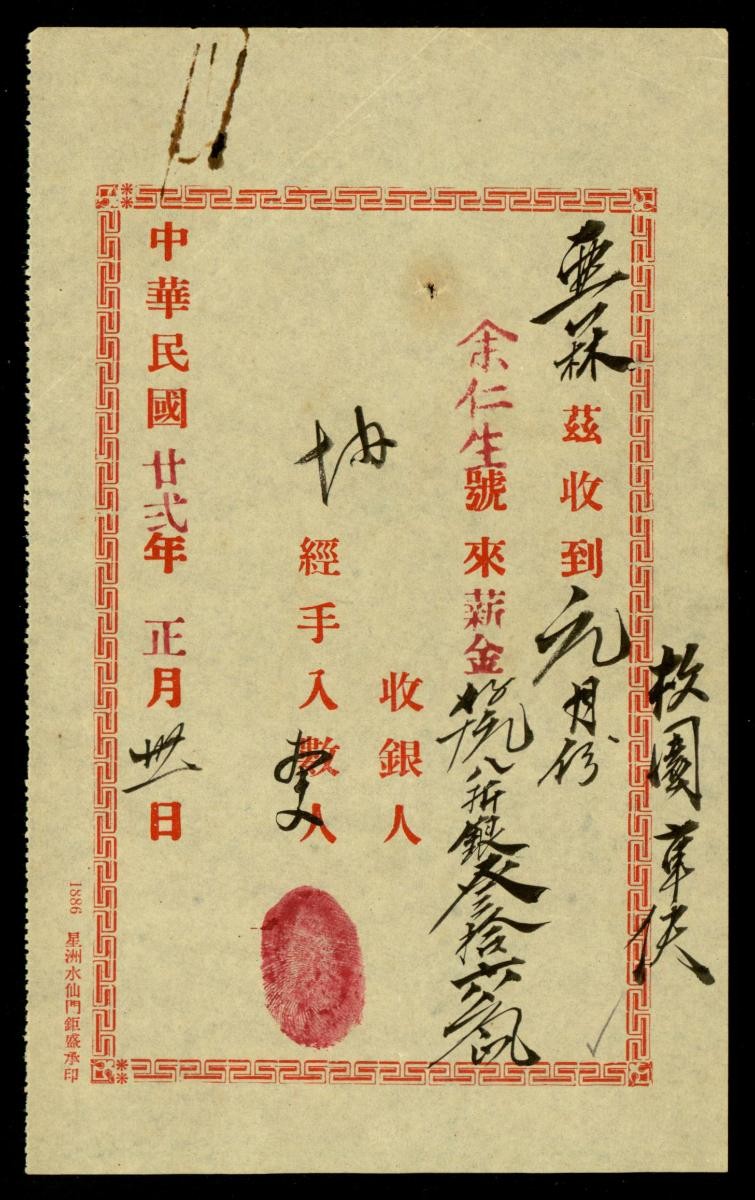 亜菻茲收到元月份
余仁生號來薪金
八折銀叄拾六
收銀人
經手入數人
中華民國廿弍年正月卅一日
園車伕
1886 星洲水仙門鉅盛承印